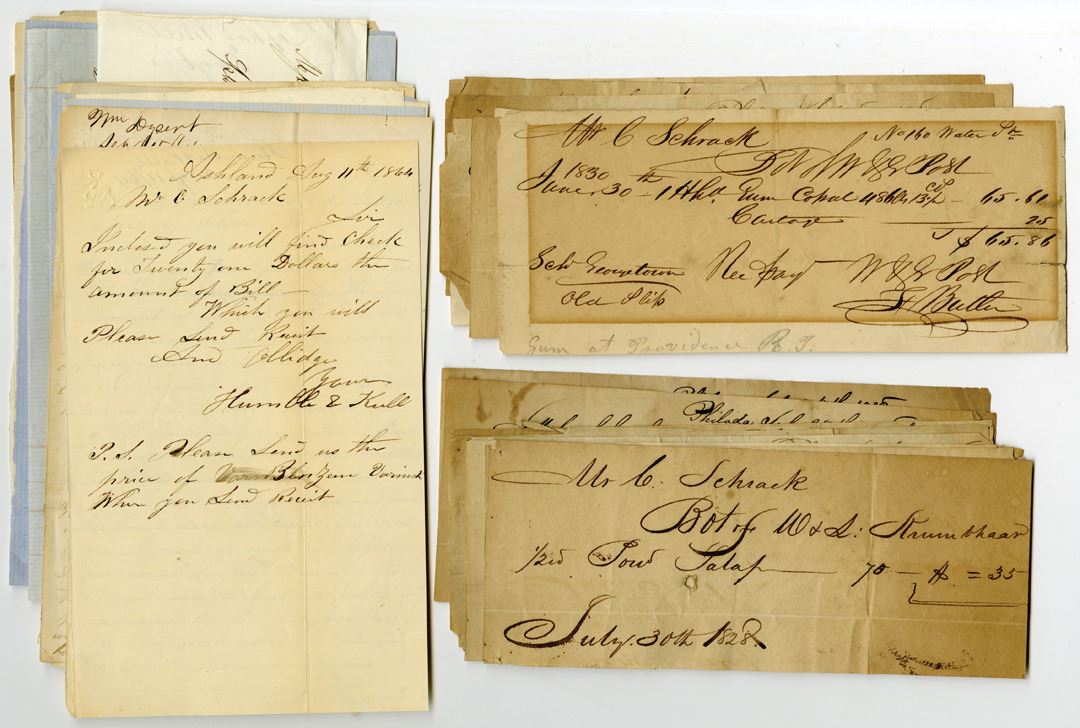 Wm Dysert
Ashland Aug 11th 1864
Mr C. Schrack
Sir
Inclosed you will find Check
for Twenty one Dollars the
amount of Bill
Which you will
Please Send Receit
And Obllidge
Yours
Humble & Kull
P.S. Please Send us the
price of
When you Send Receit
Mr C Schrack
No 160 Water St
Bot of W & J Post
1830
June 30th 1 Hhd. Gum Copal 65.61
Cartage 25
$ 65.86
Sch Georgetown Rec Pay W & J Post
Old Slip Butler
Gum at Providence R.I.
Philada
Mr C. Schrack
Bot of W & L: Krumbhaar
1/2 Pow Jalap 70 = 35
July 30th 1828.